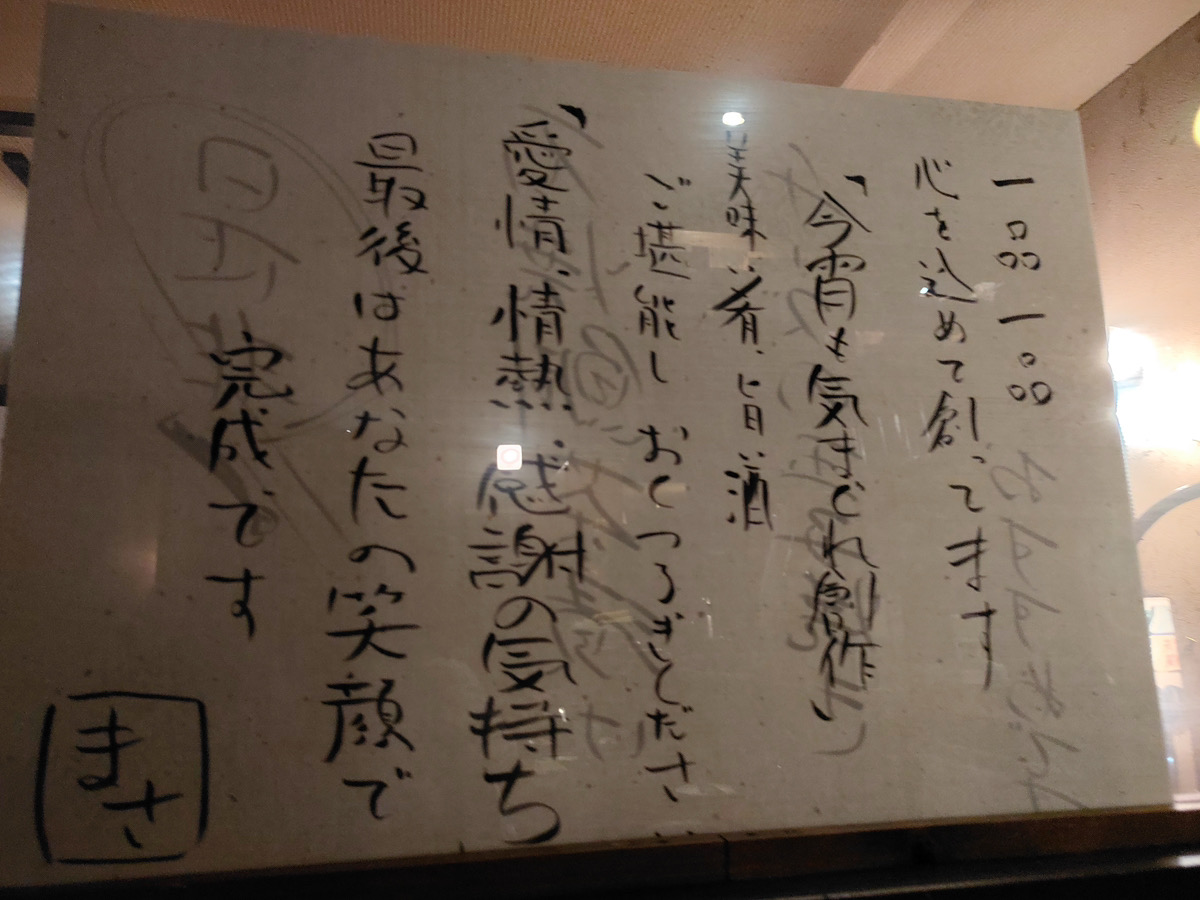 一品一品
心を込めて創ってます
「今宵も気まぐれ創作」
美味い肴、旨い酒
ご堪能し おくつろぎください
「愛情、情熱、感謝の気持ち
最後はあなたの笑顔で
完成です
まさ